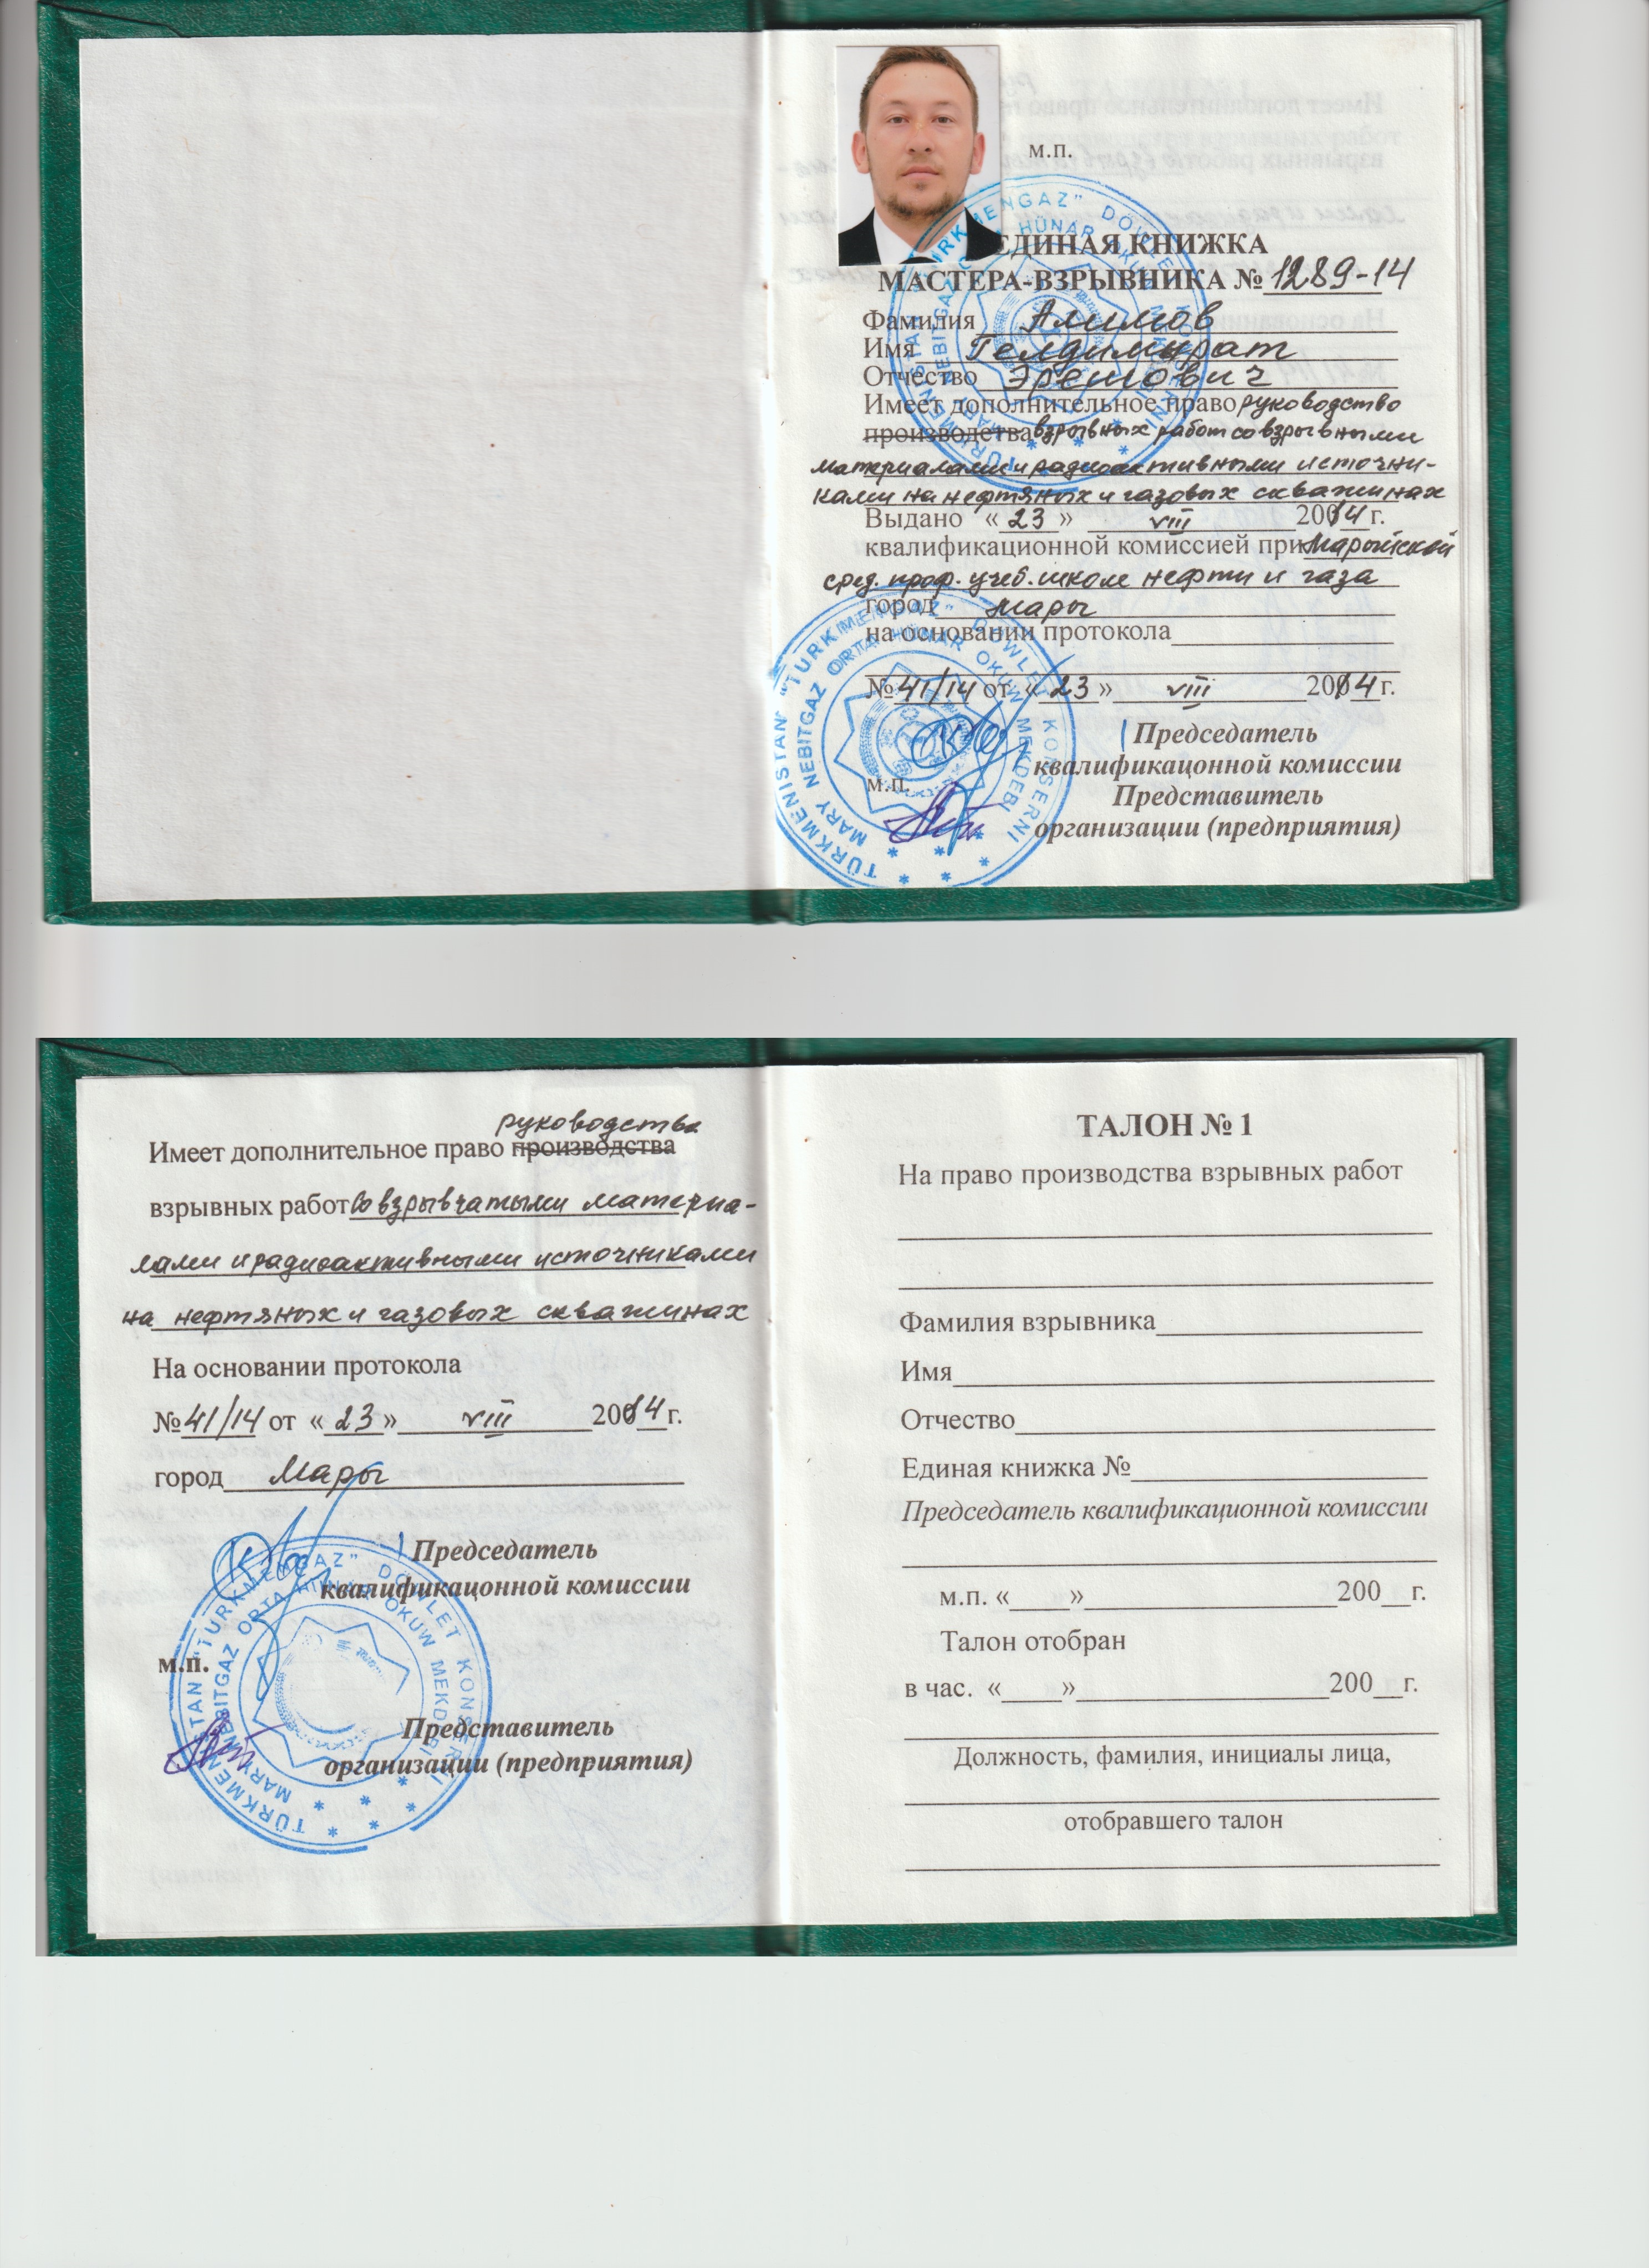 м.п.
ЕДИНАЯ КНИЖКА
МАСТЕРА-ВЗРЫВНИКА № 1289-14
Фамилия Алимов
Имя Гелдимырат
Отчество Эрешович
Имеет дополнительное право руководство
производства взрывных работ со взрывными
материалами и радиоактивными источни-
ками на нефтяных и газовых скважинах
Выдано « 23 » VIII 2014 г.
квалификационной комиссией при Марыйской
сред. проф. учеб. школе нефти и газа
город Мары
на основании протокола
№ 41/14 от « 23 » VIII 2014 г.
Председатель
квалификацонной комиссии
м.п.
Представитель
организации (предприятия)
TÜRKMENISTAN "TÜRKMENGAZ" DÖWLET KONSERNI
MARY NEBITGAZ ORTA HÜNÄR OKUW MEKDEBI
руководства
Имеет дополнительное право производства
взрывных работ со взрывчатыми материа-
лами и радиоактивными источниками
на нефтяных и газовых скважинах
На основании протокола
№ 41/14 от « 23 » VIII 2014 г.
город Мары
Председатель
квалификацонной комиссии
м.п.
Представитель
организации (предприятия)
TÜRKMENISTAN "TÜRKMENGAZ" DÖWLET KONSERNI
MARY NEBITGAZ ORTA HÜNÄR OKUW MEKDEBI
ТАЛОН № 1
На право производства взрывных работ
Фамилия взрывника
Имя
Отчество
Единая книжка №
Председатель квалификационной комиссии
м.п. «____»____200__г.
Талон отобран
в час. «____»____200__г.
Должность, фамилия, инициалы лица,
отобравшего талон